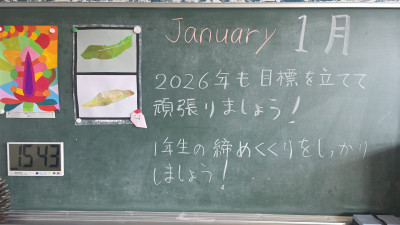 January 1月
2026年も目標を立てて
頑張りましょう！
1年生の締めくくりをしっかり
しましょう！
15:43